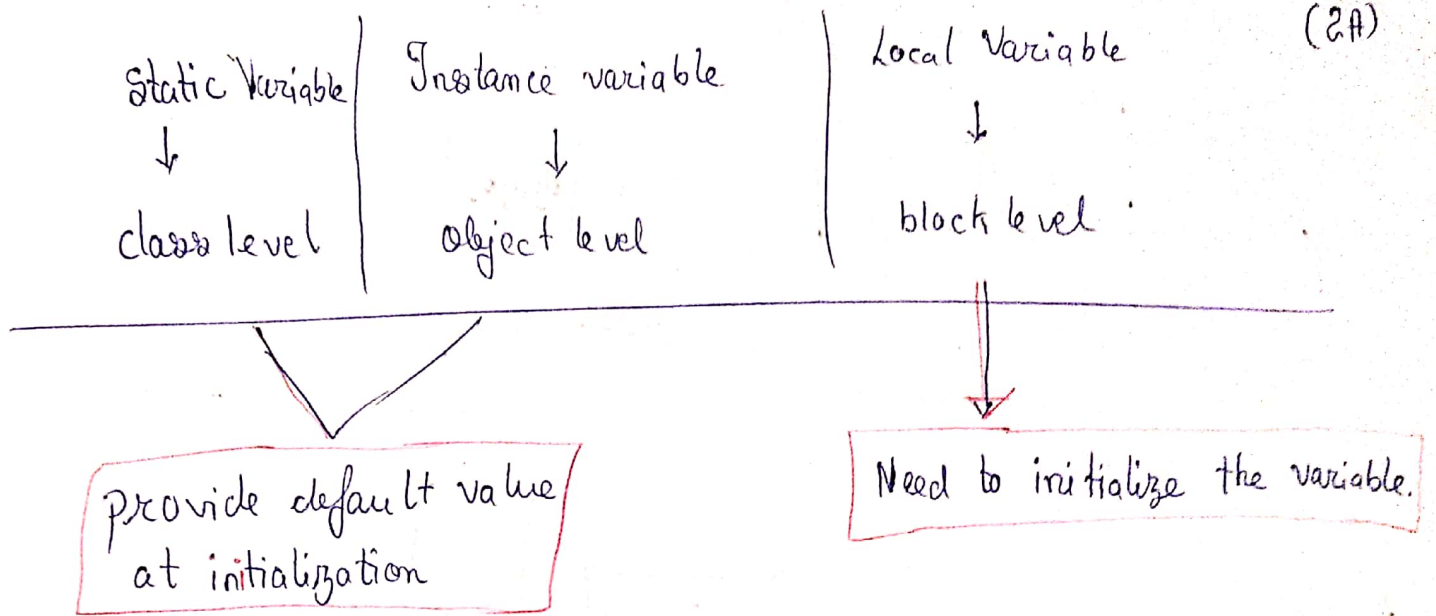 (2A)
Static Variable
↓
class level
Instance variable
↓
object level
Local Variable
↓
block level
provide default value
at initialization
Need to initialize the variable.